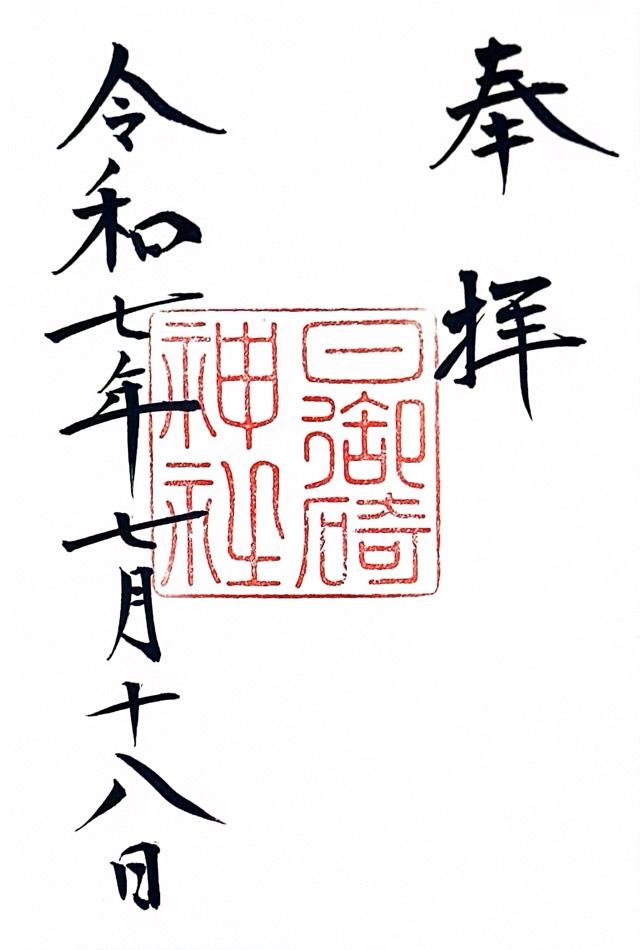 奉拝
日御碕
神社
令和七年七月十八日